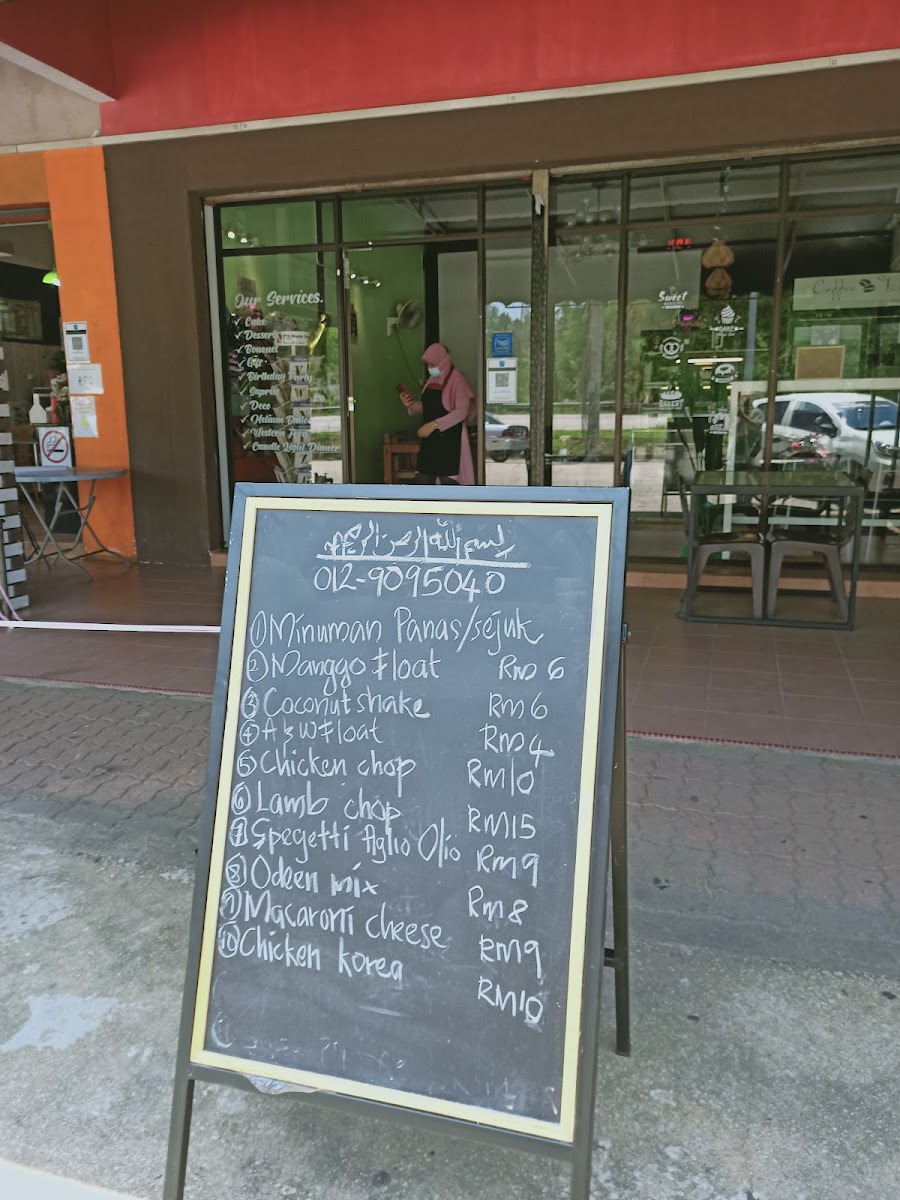 Our Services.
✓ Cake
✓ Dessert
✓ Bouquet
✓ Gift
✓ Birthday Party
✓ Suprise
✓ Deco
✓ Helium Balloon
✓ Western Food
✓ Candle Light Dinner
Sweet
BAKE
BAKERY
Coffee
بسم الله الرحمن الرحيم
012-9095040
① Minuman Panas/sejuk
② Manggo Float RM 6
③ Coconut shake RM6
④ A & W Float RM4
⑤ Chicken chop RM10
⑥ Lamb chop RM15
⑦ Spegetti Aglio Olio RM9
⑧ Odeen mix RM8
⑨ Macaroni cheese RM9
⑩ Chicken korea RM10